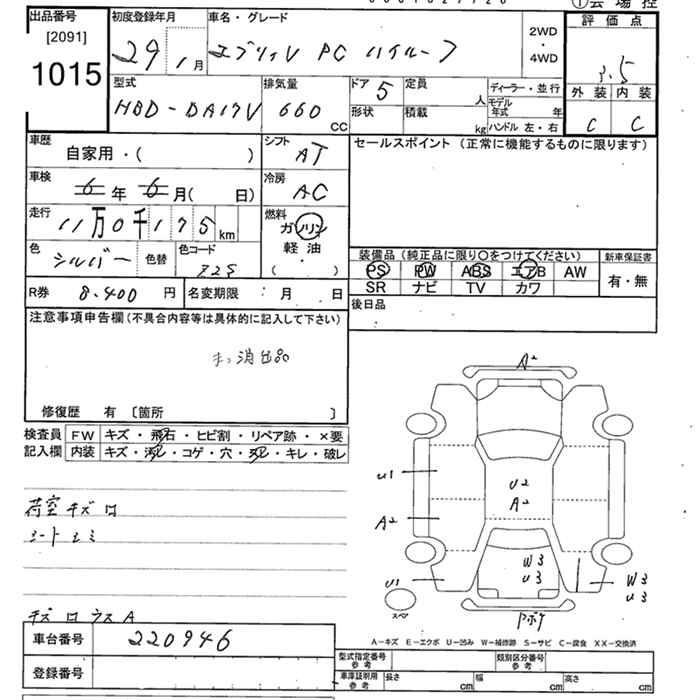 ① 会場控
出品番号 初度登録年月 車名・グレード 評価点
[2091]
1015
29年 1月 エブリィV PC ハイルーフ 2WD・4WD 3.5
型式 排気量 ドア 5 定員 人 ディーラー・並行 外装 内装
HBD-DA17V 660 CC 形状 積載 kg モデル年式 年 C C
ハンドル 左・右
車歴 自家用・( ) シフト AT セールスポイント (正常に機能するものに限ります)
車検 6年 6月( 日) 冷房 AC
走行 11万0千175km 燃料 ガソリン
色 シルバー 色替 色コード Z2S 軽油・( )
装備品 (純正品に限り○をつけてください) 新車保証書
PS PW ABS エアB AW 有・無
SR ナビ TV カワ
R券 8,400円 名変期限 : 月 日 後日品
注意事項申告欄 (不具合内容等は具体的に記入して下さい)
消出品
修復歴 有 〔箇所 〕
検査員 FW キズ・飛石・ヒビ割・リペア跡・×要
記入欄 内装 キズ・汚レ・コゲ・穴・スレ・キレ・破レ
A2
U1
U2
A2
A2
W3
U3
U1
W3
U3
スペア
荷室キズロ
シートシミ
キズロ ウスA
A-キズ E-エクボ U-凹み W-補修跡 S-サビ C-腐食 XX-交換済
車台番号 220946
型式指定番号 参考 類別区分番号 参考
登録番号 車庫証明用 参考 長さ cm 幅 cm 高さ cm